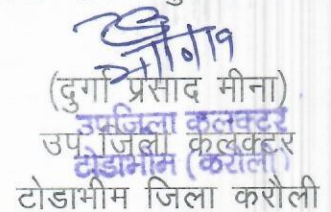 (दुर्गा प्रसाद मीना)
उपजिला कलक्टर
उप जिला कलेक्टर
टोडाभीम (करौली)
टोडाभीम जिला करौली